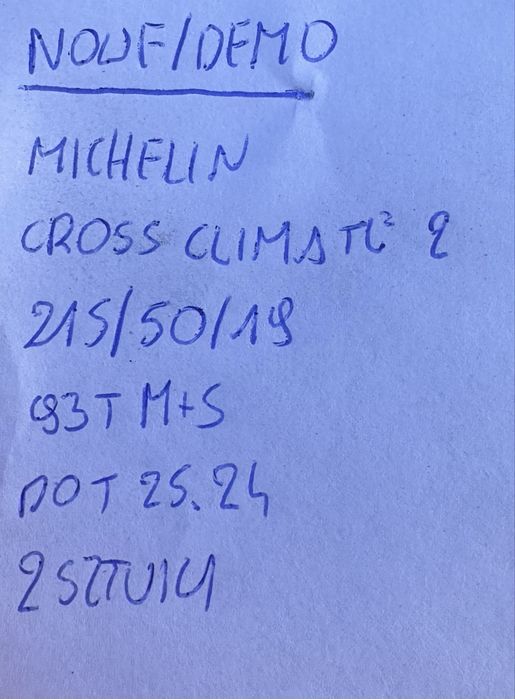 NOWE/DEMO
MICHELIN
CROSS CLIMATE 2
215/50/19
93T M+S
DOT 25.24
2 SZTUKI